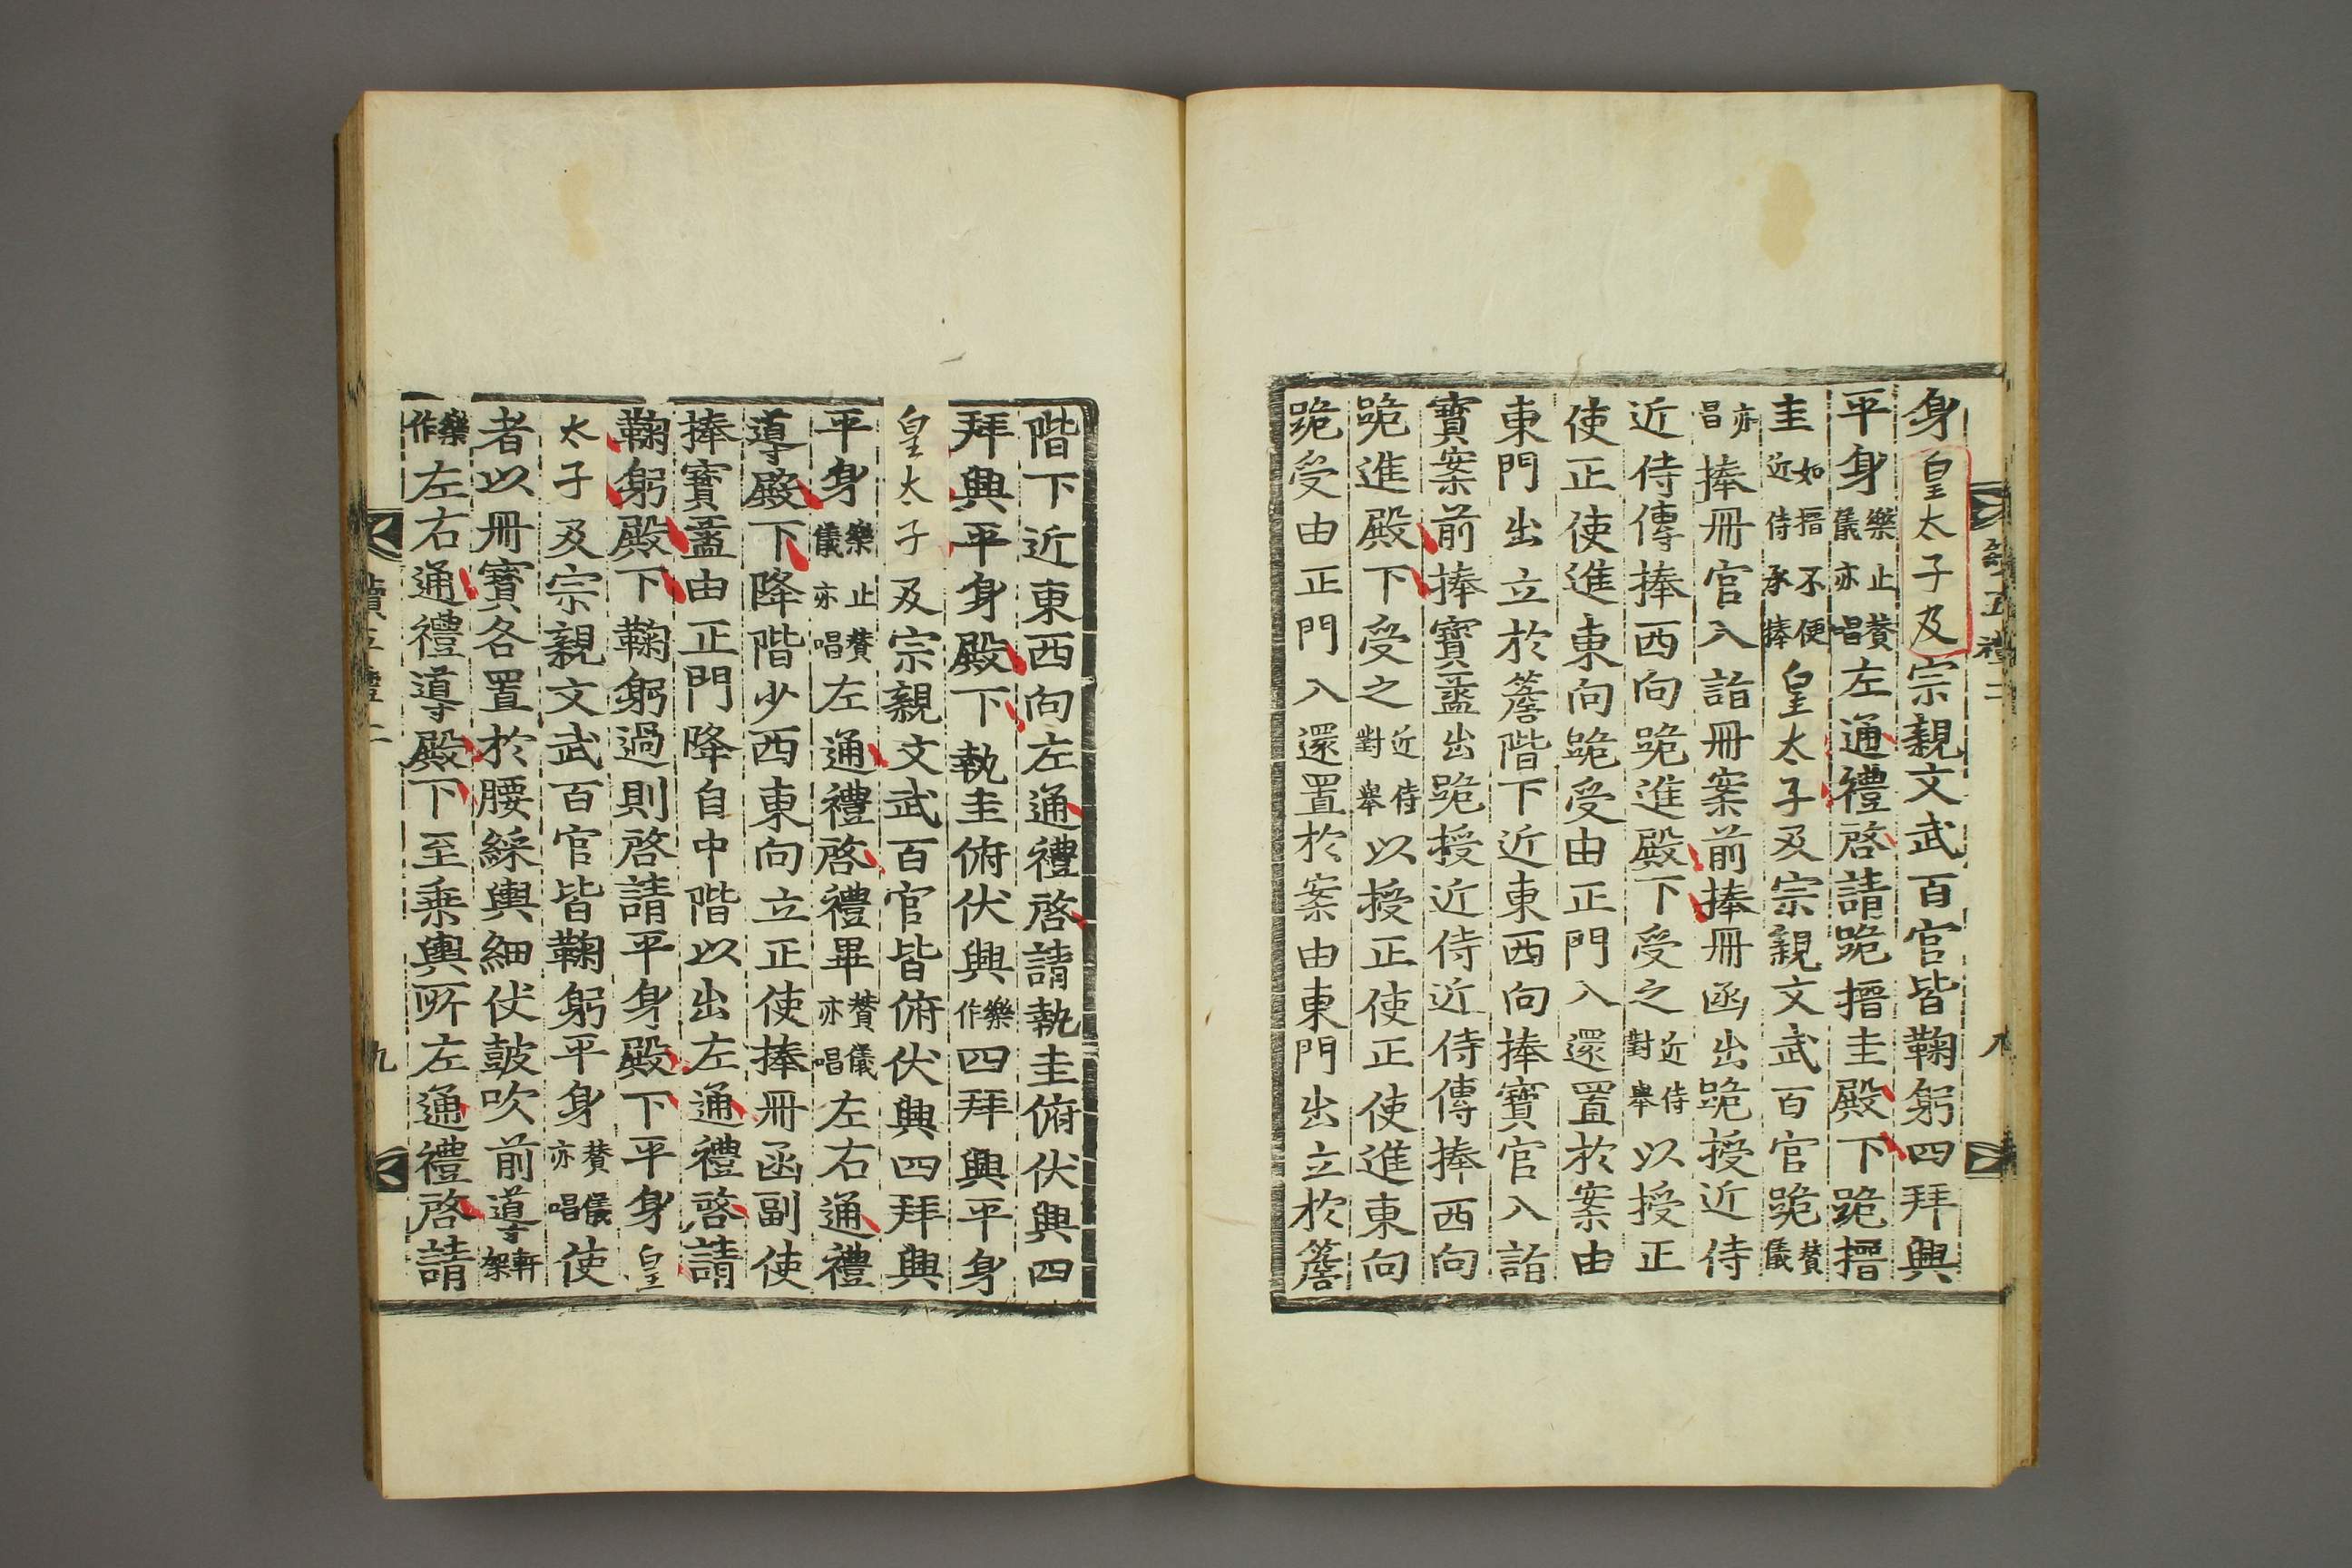 身皇太子及宗親文武百官皆鞠躬四拜興
平身樂止贊儀亦唱左通禮啓請跪搢圭殿下跪搢
圭如搢不便近侍承捧皇太子及宗親文武百官跪贊儀
亦唱捧冊官入詣冊案前捧冊函出跪授近侍
近侍傳捧西向跪進殿下受之近侍對舉以授正
使正使進東向跪受由正門入還置於案由
東門出立於簷階下近東西向捧寶官入詣
寶案前捧寶盝出跪授近侍近侍傳捧西向
跪進殿下受之近侍對舉以授正使正使進東向
跪受由正門入還置於案由東門出立於簷
階下近東西向左通禮啓請執圭俯伏興四
拜興平身殿下執圭俯伏興樂作四拜興平身
皇太子及宗親文武百官皆俯伏興四拜興
平身樂止贊儀亦唱左通禮啓禮畢贊儀亦唱左右通禮
導殿下降階少西東向立正使捧冊函副使
捧寶盝由正門降自中階以出左通禮啓請
鞠躬殿下鞠躬過則啓請平身殿下平身皇
太子及宗親文武百官皆鞠躬平身贊儀亦唱使
者以冊寶各置於腰綵輿細仗鼓吹前導軒架
樂作左右通禮導殿下至乘輿所左通禮啓請
九